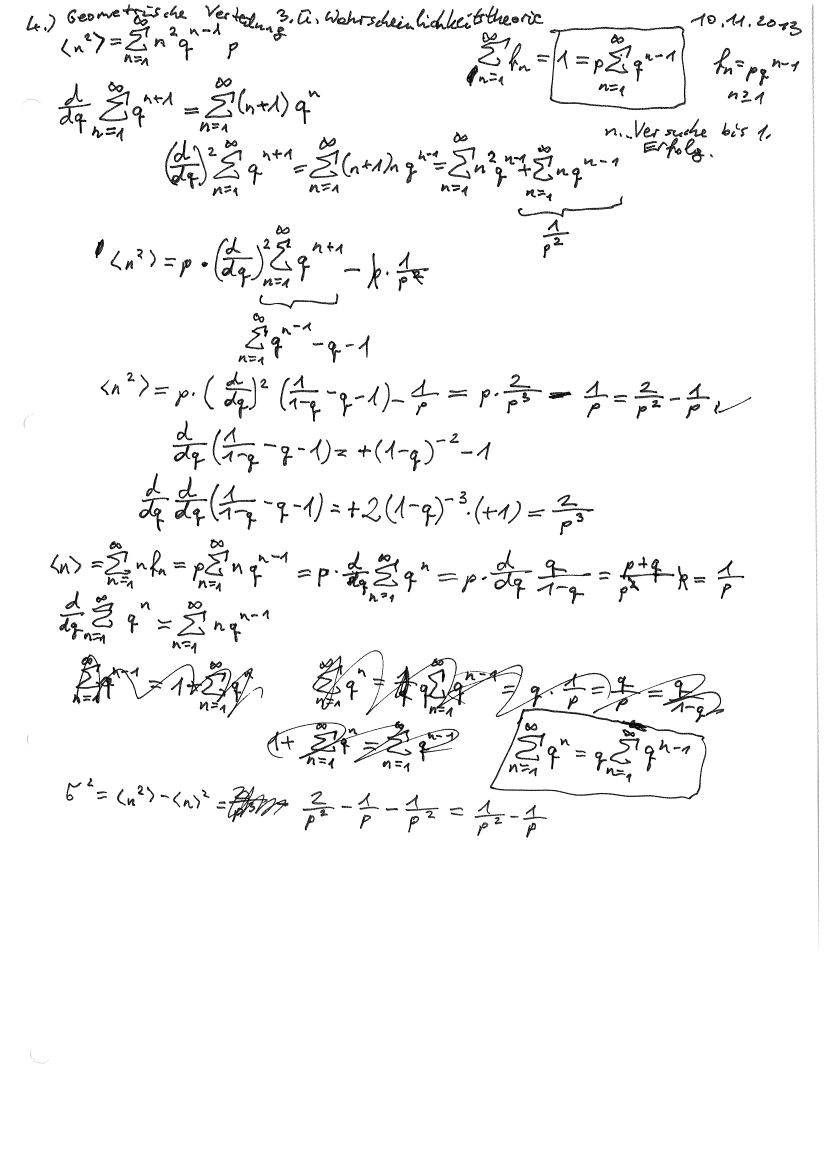 4.) Geometrische Verteilung 3. Ü. Wahrscheinlichkeitstheorie 10.11.2013
⟨n²⟩ = ∑_{n=1}^∞ n² q^{n-1} p
∑_{n=1}^∞ f_n = 1 = p ∑_{n=1}^∞ q^{n-1}
f_n = p q^{n-1}
n ≥ 1
d/dq ∑_{n=1}^∞ q^{n+1} = ∑_{n=1}^∞ (n+1) q^n
n.. Versuche bis 1.
Erfolg.
(d/dq)² ∑_{n=1}^∞ q^{n+1} = ∑_{n=1}^∞ (n+1) n q^{n-1} = ∑_{n=1}^∞ n² q^{n-1} + ∑_{n=1}^∞ n q^{n-1}
1/p²
⟨n²⟩ = p · (d/dq)² ∑_{n=1}^∞ q^{n+1} − p · 1/p²
∑_{n=1}^∞ q^{n-1} − q − 1
⟨n²⟩ = p · (d/dq)² (1/(1-q) − q − 1) − 1/p = p · 2/p³ − 1/p = 2/p² − 1/p ✓
d/dq (1/(1-q) − q − 1) = +(1-q)^{-2} − 1
d/dq d/dq (1/(1-q) − q − 1) = +2(1-q)^{-3} · (+1) = 2/p³
⟨n⟩ = ∑_{n=1}^∞ n f_n = p ∑_{n=1}^∞ n q^{n-1} = p · d/dq ∑_{n=1}^∞ q^n = p · d/dq q/(1-q) = (p+q)/p² p = 1/p
d/dq ∑_{n=1}^∞ q^n = ∑_{n=1}^∞ n q^{n-1}
∑_{n=1}^∞ q^{n-1} = 1 + ∑_{n=1}^∞ q^n
∑_{n=1}^∞ q^n = q ∑_{n=1}^∞ q^{n-1} = q · 1/p = q/p = q/(1-q)
1 + ∑_{n=1}^∞ q^n = ∑_{n=1}^∞ q^{n-1}
∑_{n=1}^∞ q^n = q ∑_{n=1}^∞ q^{n-1}
σ² = ⟨n²⟩ − ⟨n⟩² = 2/p² − 1/p − 1/p² = 1/p² − 1/p